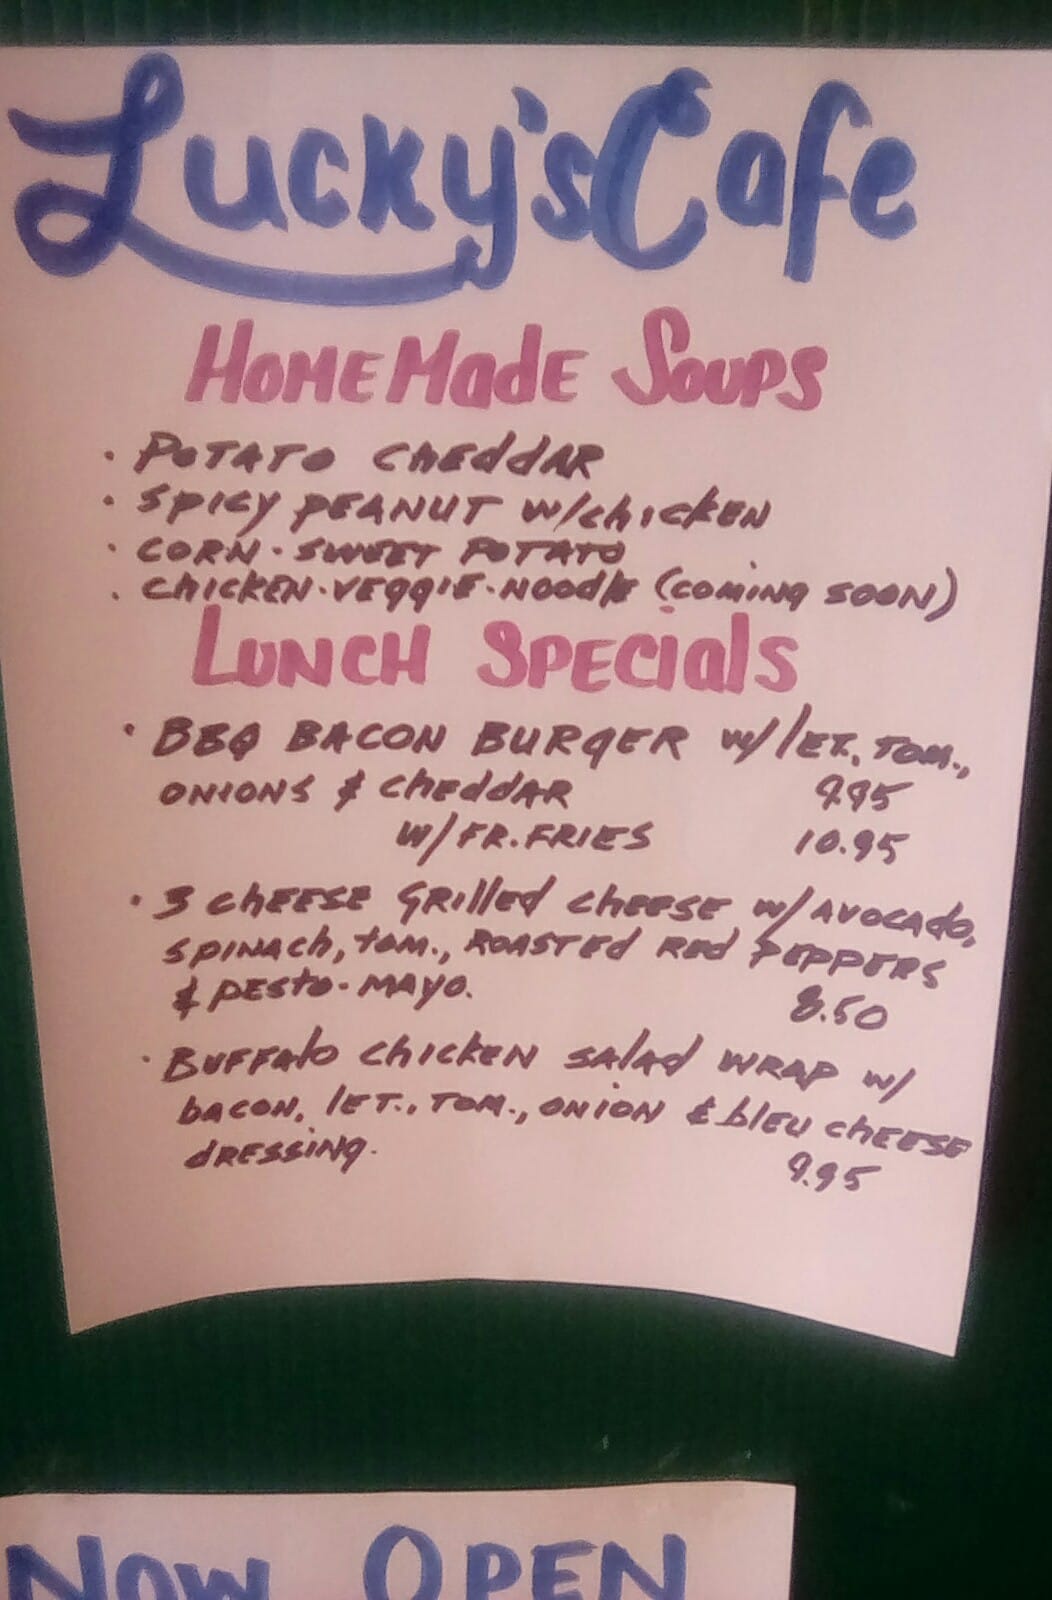 Lucky's Cafe
HomeMade Soups
• Potato Cheddar
• Spicy Peanut w/chicken
• Corn - Sweet Potato
• Chicken-Veggie-Noodle (coming soon)
Lunch Specials
• BBQ Bacon Burger w/let., tom.,
onions & cheddar 9.95
w/Fr. Fries 10.95
• 3 cheese Grilled cheese w/avocado,
spinach, tom., roasted red peppers
& pesto-mayo. 8.50
• Buffalo chicken salad wrap w/
bacon, let., tom., onion & bleu cheese
dressing. 9.95
Now Open